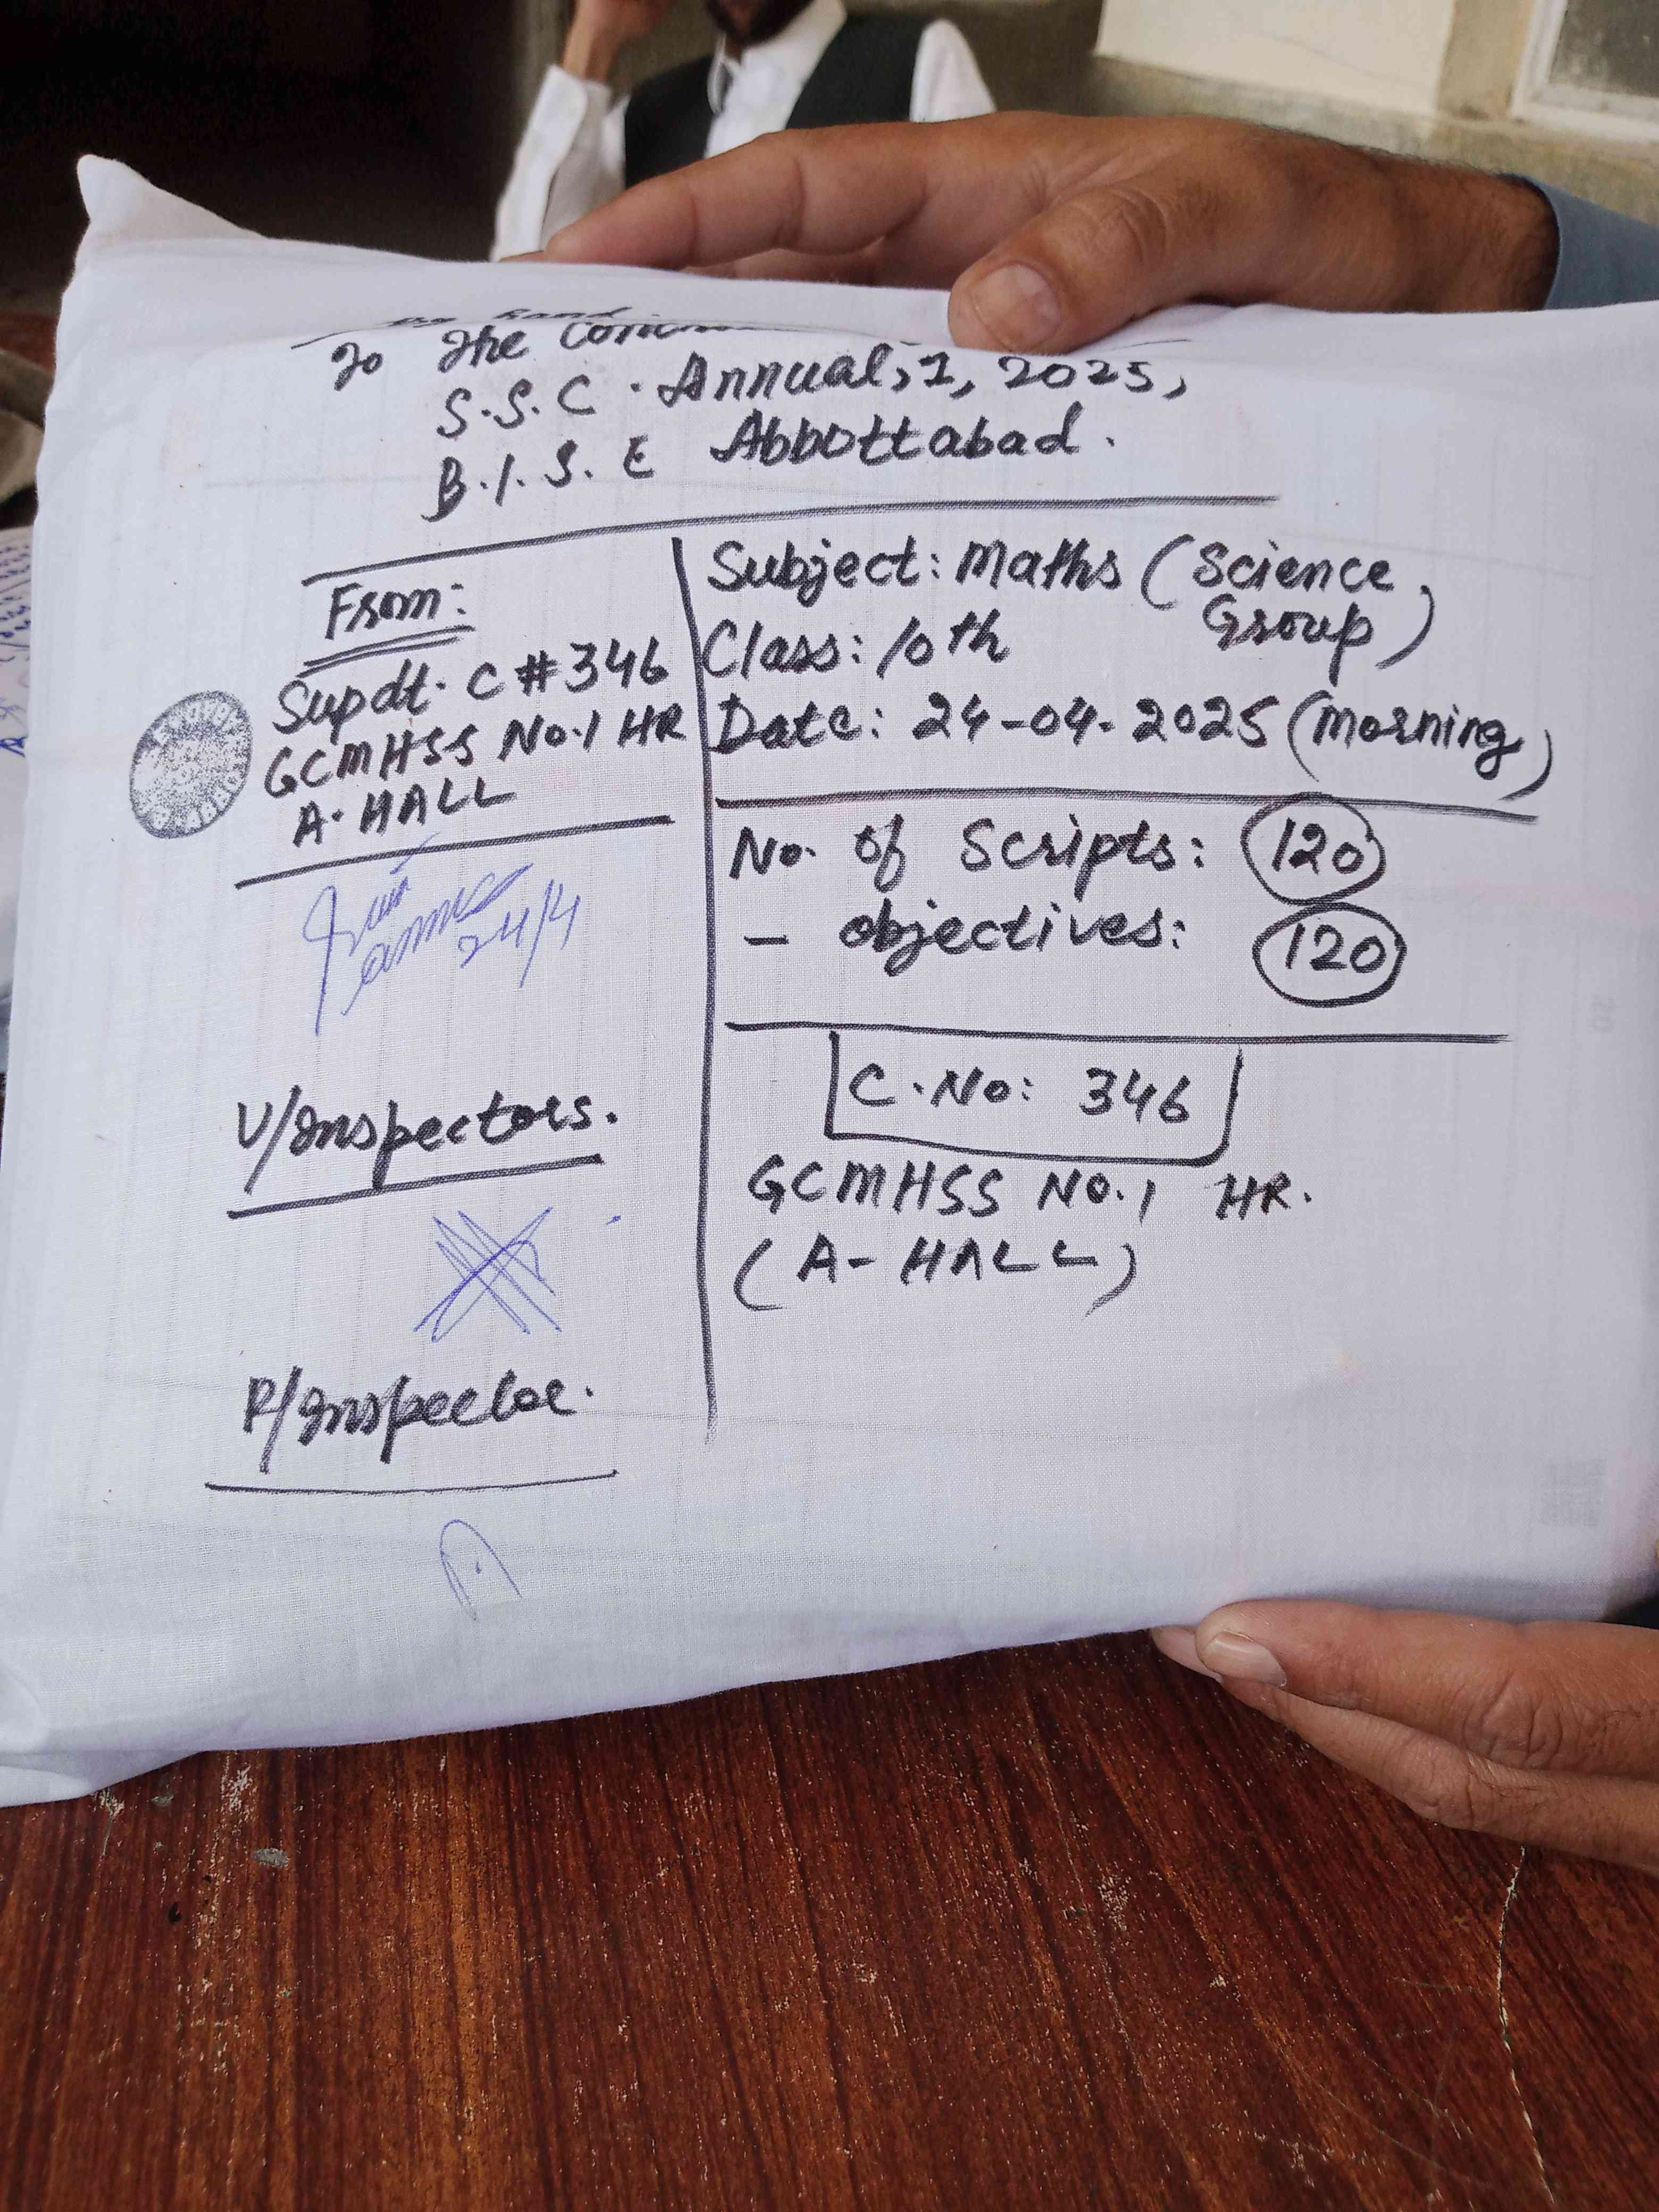 By hand.
To The
S.S.C. Annual, 1, 2025,
B.I.S.E Abbottabad.
From:
Supdt. C # 346
GCMHSS No.1 HR
A-HALL
24/4
V/Inspectors.
P/Inspector.
Subject: Maths (Science
Group)
Class: 10th
Date: 24-04-2025 (Morning)
No. of Scripts: 120
– objectives: 120
C.No: 346
GCMHSS NO.1 HR.
(A-HALL)